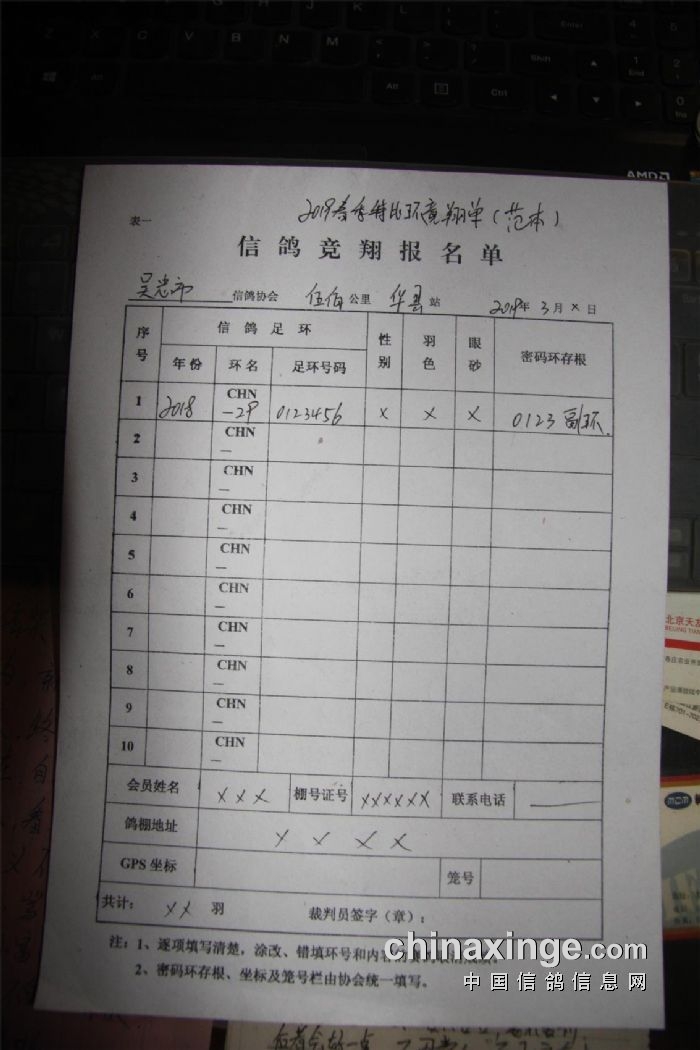 Enter
Shift
Alt
Ctrl
1
End
2
0
Ins
AMD
表一
2019春季特比环竞翔单(范本)
信鸽竞翔报名单
吴忠市 信鸽协会 伍佰 公里 华县 站 2019年 3月 x 日
序号 信鸽足环 性别 羽色 眼砂 密码环存根
年份 环名 足环号码
1 2018 CHN—29 0123456 x x x 0123 副环
2 CHN—
3 CHN—
4 CHN—
5 CHN—
6 CHN—
7 CHN—
8 CHN—
9 CHN—
10 CHN—
会员姓名 xxx 棚号证号 xxxxxx 联系电话 ——
鸽棚地址 x x x x
GPS 坐标 笼号
共计: xx 羽 裁判员签字(章):
注:1、逐项填写清楚,涂改、错填环号和内容
2、密码环存根、坐标及笼号栏由协会统一填写。
chinaxinge.com
中国信鸽信息网
北京天友
BEIJING TIAN